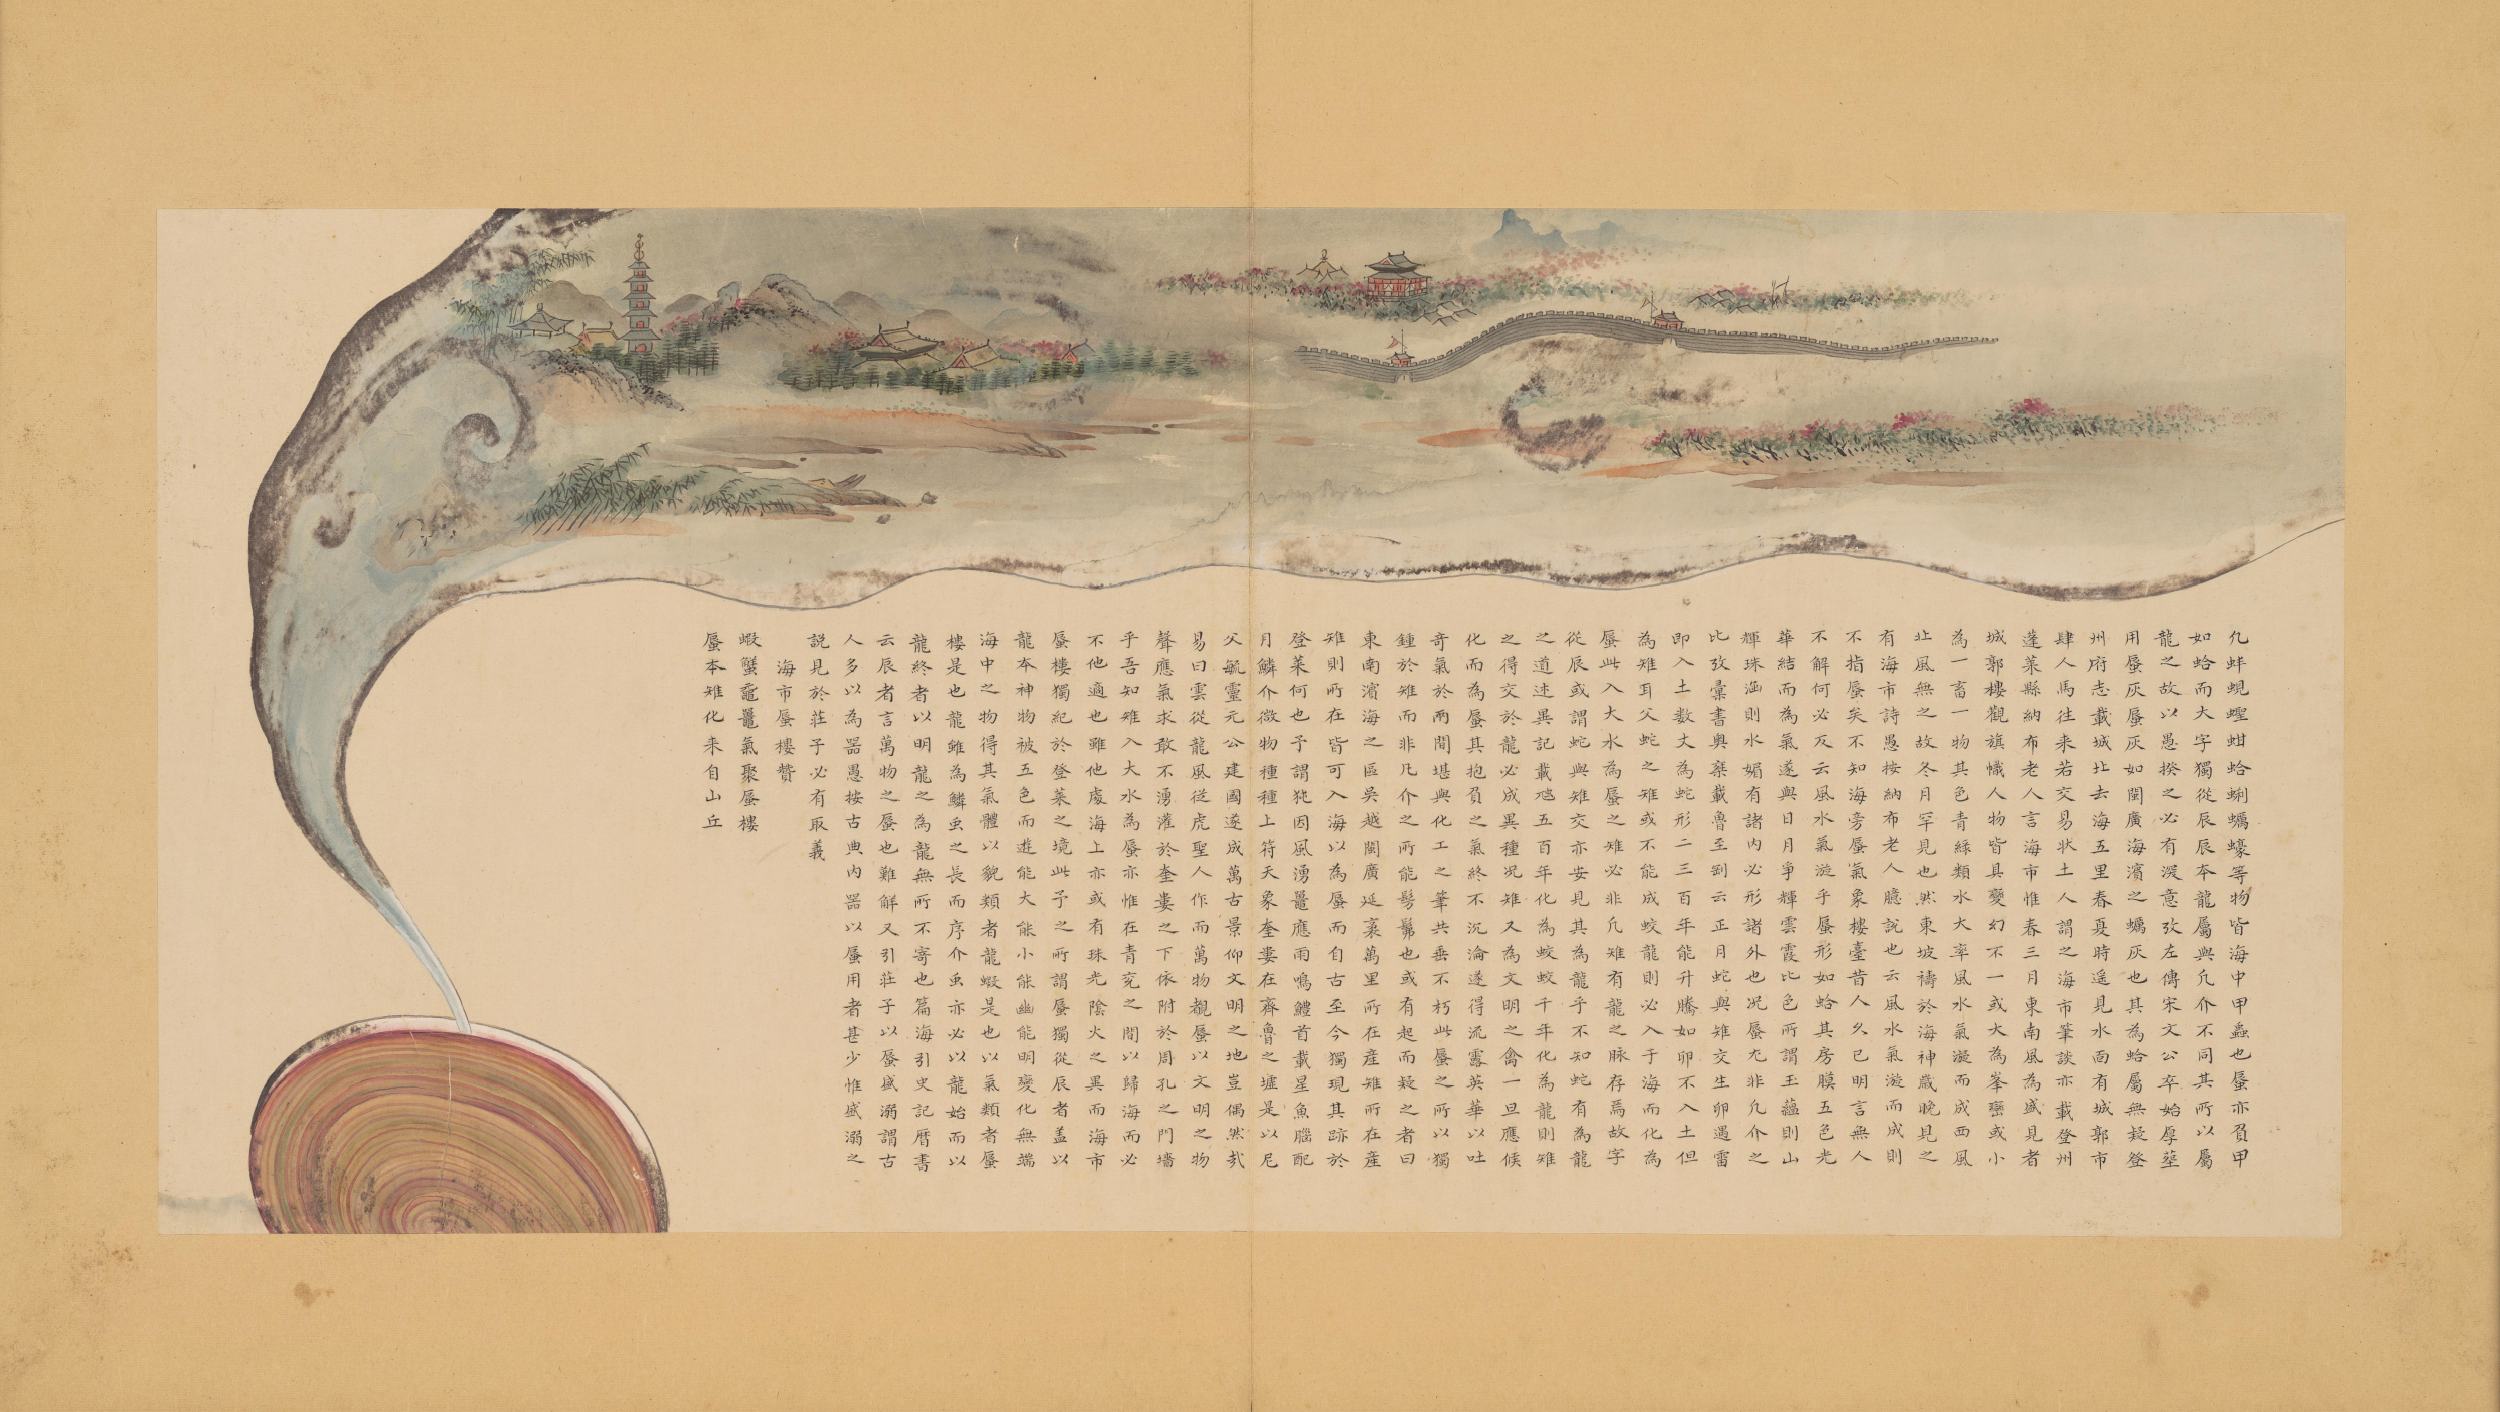 凢蚌蜆蟶蚶蛤蜊蠣蠔等物皆海中甲蟲也蜃亦負甲
如蛤而大字獨從辰辰本龍屬與凢介不同其所以屬
龍之故以愚揆之必有深意攷左傳宋文公卒始厚塟
用蜃灰蜃灰如閩廣海濱之蠣灰也其為蛤屬無疑登
州府志載城北去海五里春夏時遥見水面有城郭市
肆人馬往来若交易狀土人謂之海市筆談亦載登州
蓬萊縣納布老人言海市惟春三月東南風為盛見者
城郭樓觀旗幟人物皆具變幻不一或大為峯巒或小
為一畜一物其色青綠類水大率風水氣凝而成西風
北風無之故冬月罕見也然東坡禱於海神歲晚見之
有海市詩愚按納布老人臆説也云風水氣漩而成則
不指蜃矣不知海旁蜃氣象樓臺昔人久已明言無人
不解何必反云風水氣漩乎蜃形如蛤其房膜五色光
華結而為氣遂與日月爭輝雲霞比色所謂玉蘊則山
輝珠涵則水媚有諸內必形諸外也况蜃尤非凢介之
比攷彙書奥乘載魯至剛云正月蛇與雉交生卵遇雷
即入土數丈為蛇形二三百年能升騰如卵不入土但
為雉耳父蛇之雉或不能成蛟龍則必入于海而化為
蜃此入大水為蜃之雉必非凢雉有龍之脉存焉故字
從辰或謂蛇與雉交亦安見其為龍乎不知蛇有為龍
之道述異記載虺五百年化為蛟蛟千年化為龍則雉
之得交於龍必成異種况雉又為文明之禽一旦應候
化而為蜃其抱負之氣終不沉淪遂得流露英華以吐
奇氣於兩間堪與化工之筆共垂不朽此蜃之所以獨
鍾於雉而非凢介之所能髣髴也或有起而疑之者曰
東南濱海之區吳越閩廣延袤萬里所在產雉所在產
雉則所在皆可入海以為蜃而自古至今獨現其跡於
登萊何也予謂㹠因風湧鼉應雨鳴鱧首載星魚腦配
月鱗介微物種種上符天象奎婁在齊魯之墟是以尼
父毓靈元公建國遂成萬古景仰文明之地豈偶然㢤
易曰雲從龍風從虎聖人作而萬物覩蜃以文明之物
聲應氣求敢不湧灌於奎婁之下依附於周孔之門墻
乎吾知雉入大水為蜃亦惟在青兖之間以歸海而必
不他適也雖他處海上亦或有珠光陰火之異而海市
蜃樓獨紀於登萊之境此予之所謂蜃獨從辰者盖以
龍本神物被五色而遊能大能小能幽能明變化無端
海中之物得其氣體以貌類者龍蝦是也以氣類者蜃
樓是也龍雖為鱗虫之長而序介虫亦必以龍始而以
龍終者以明龍之為龍無所不寄也篇海引史記曆書
云辰者言萬物之蜃也難解又引莊子以蜃盛溺謂古
人多以為器愚按古典內器以蜃用者甚少惟盛溺之
説見於莊子必有取義
海市蜃樓贊
蝦蟹黿鼉氣聚蜃樓
蜃本雉化来自山丘